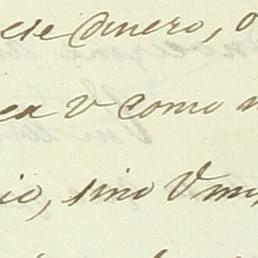 ese dinero, o
ea v como
io, sino Vm,